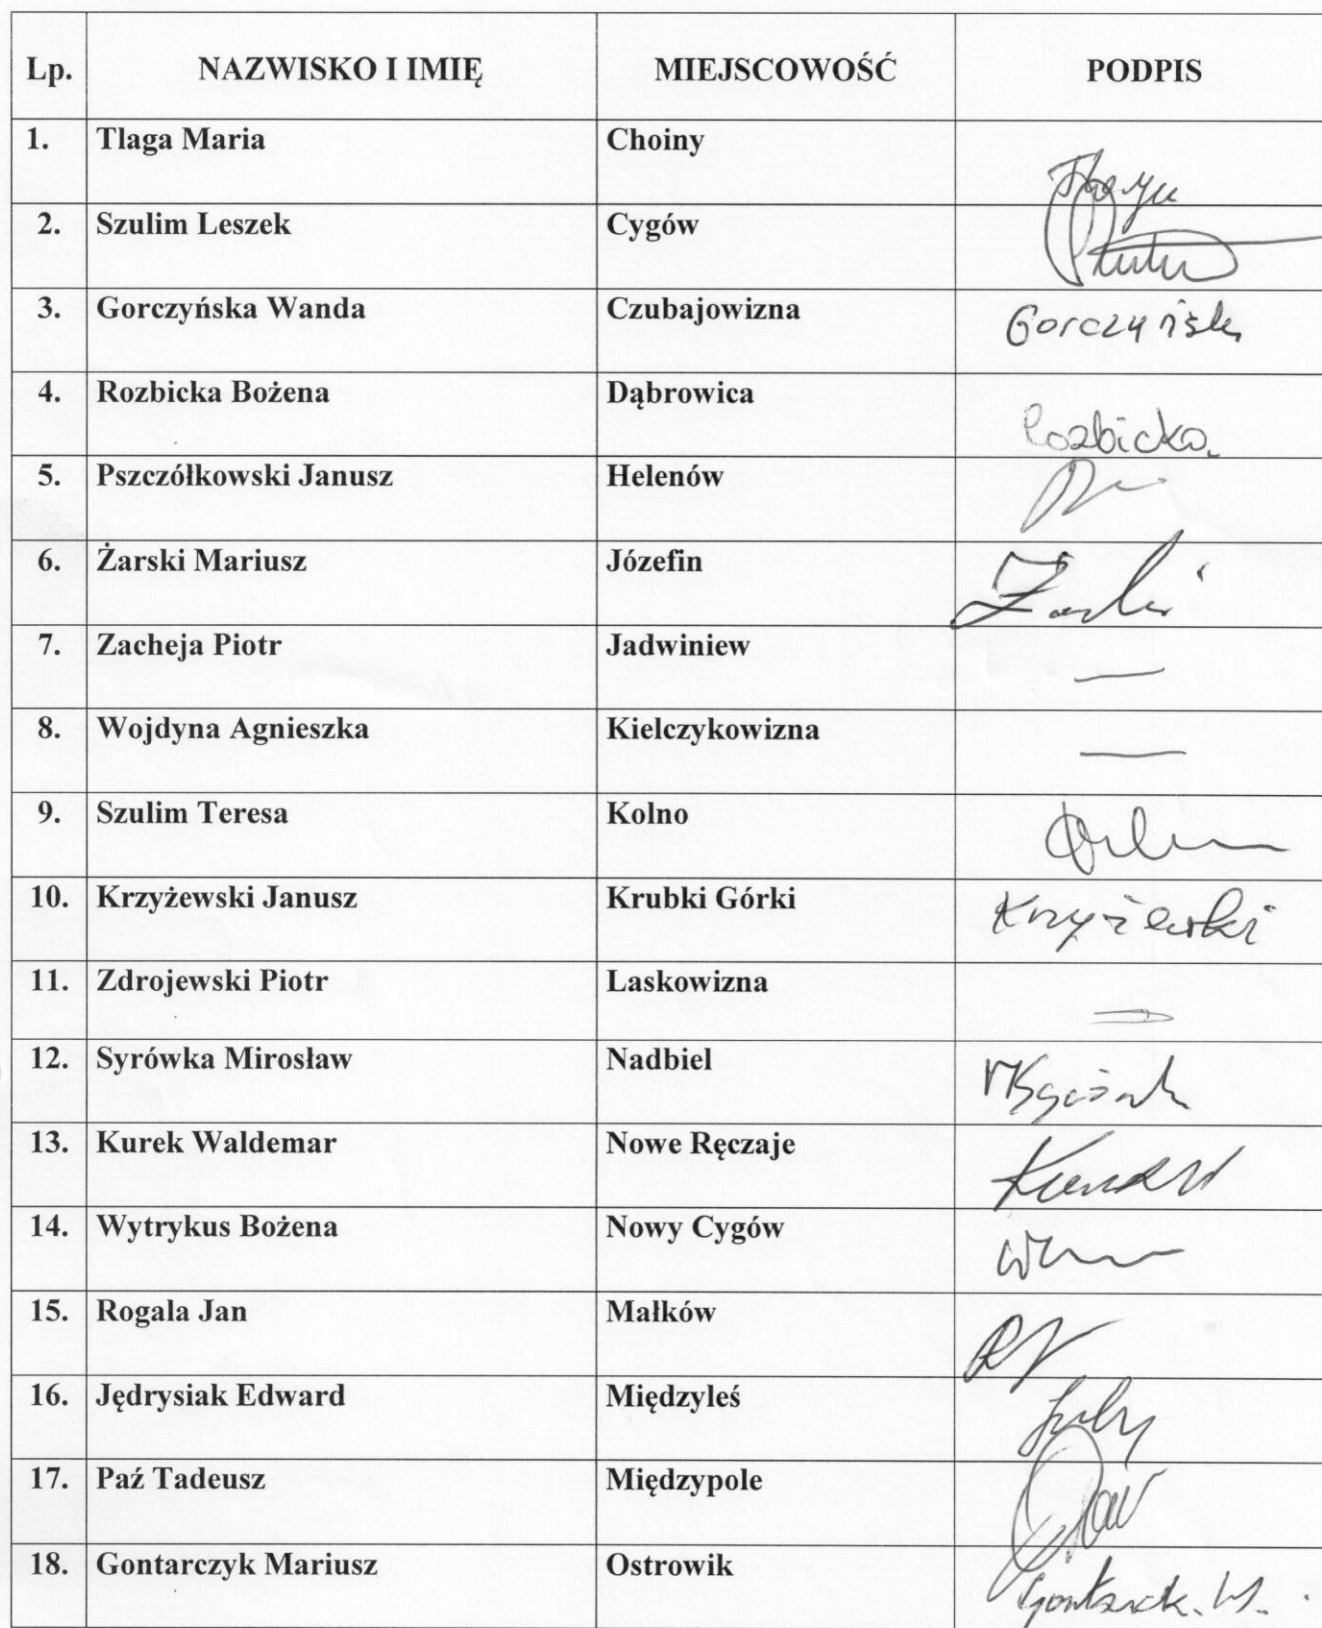 Lp. NAZWISKO I IMIĘ MIEJSCOWOŚĆ PODPIS
1. Tlaga Maria Choiny
2. Szulim Leszek Cygów
3. Gorczyńska Wanda Czubajowizna
4. Rozbicka Bożena Dąbrowica Rozbicka
5. Pszczółkowski Janusz Helenów
6. Żarski Mariusz Józefin
7. Zacheja Piotr Jadwiniew —
8. Wojdyna Agnieszka Kielczykowizna —
9. Szulim Teresa Kolno
10. Krzyżewski Janusz Krubki Górki Krzyżewski
11. Zdrojewski Piotr Laskowizna
12. Syrówka Mirosław Nadbiel
13. Kurek Waldemar Nowe Ręczaje
14. Wytrykus Bożena Nowy Cygów
15. Rogala Jan Małków
16. Jędrysiak Edward Międzyleś
17. Paź Tadeusz Międzypole
18. Gontarczyk Mariusz Ostrowik